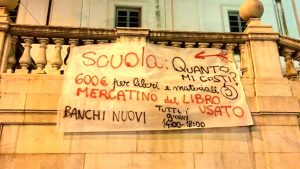 SCUOLA: QUANTO
MI COSTI?
600€ per libri e materiali
MERCATINO del LIBRO
USATO
BANCHI NUOVI
TUTTI i
giorni
14:00-18:00